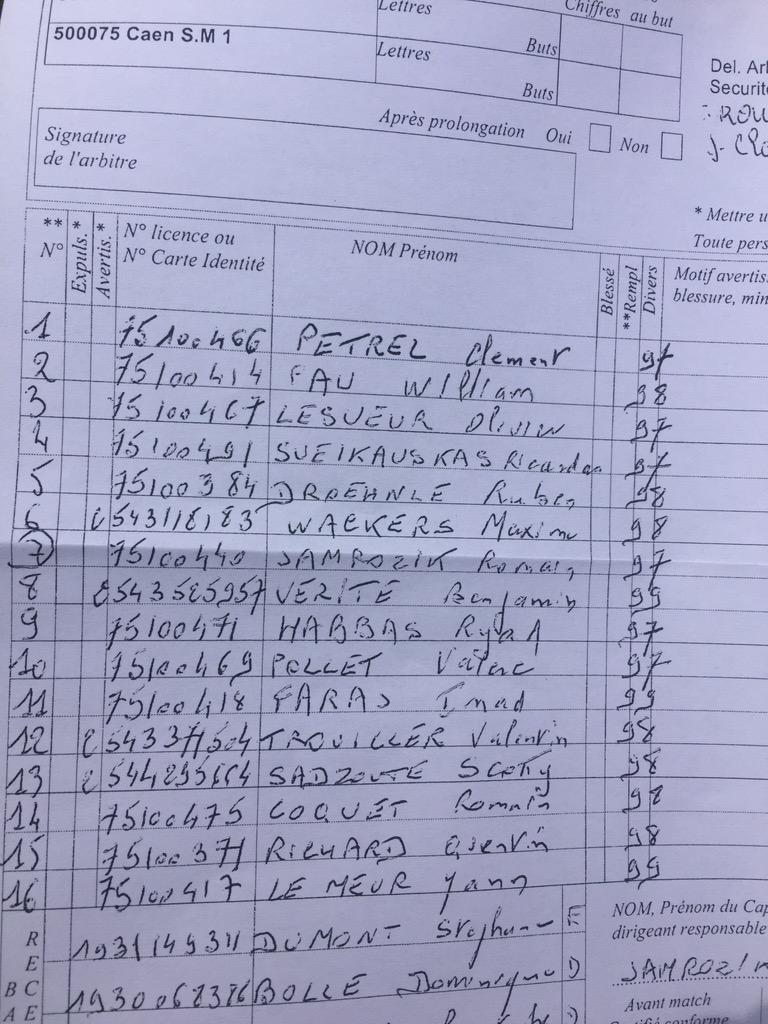 Lettres Chiffres au but
500075 Caen S.M 1
Buts
Lettres
Buts
Del. Ar
Securit
Après prolongation Oui Non
Signature
de l'arbitre
* Mettre u
Toute pers
** N° Expuls.* Avertis.* N° licence ou
N° Carte Identité NOM Prénom Blessé **Rempl Divers Motif avertis.
blessure, min
1 75100466 PETREL Clement 97
2 75100414 FAU William 98
3 75100467 LESUEUR Olivier 97
4 75100491 SVEIKAUSKAS Ricardas 97
5 75100384 DROEHNLE Ruben 98
6 2543118183 WACKERS Maxime 98
7 75100440 JAMROZIK Romain 97
8 2543585957 VERITE Benjamin 99
9 75100471 HABBAS Ryad 97
10 75100469 POLLET Valere 97
11 75100418 FARAJ Imad 99
12 2543371504 TROUILLER Valentin 98
13 SADZOUTE Scotty 98
14 75100475 COQUET Romain 98
15 75100371 RICHARD Quentin 98
16 75100417 LE MEUR Yann 99
R 1931149311 DUMONT Stephane E
E
NOM, Prénom du Cap
dirigeant responsable
B C BOLLE Dominique D
JAMROZIK
A E
Avant match
conforme